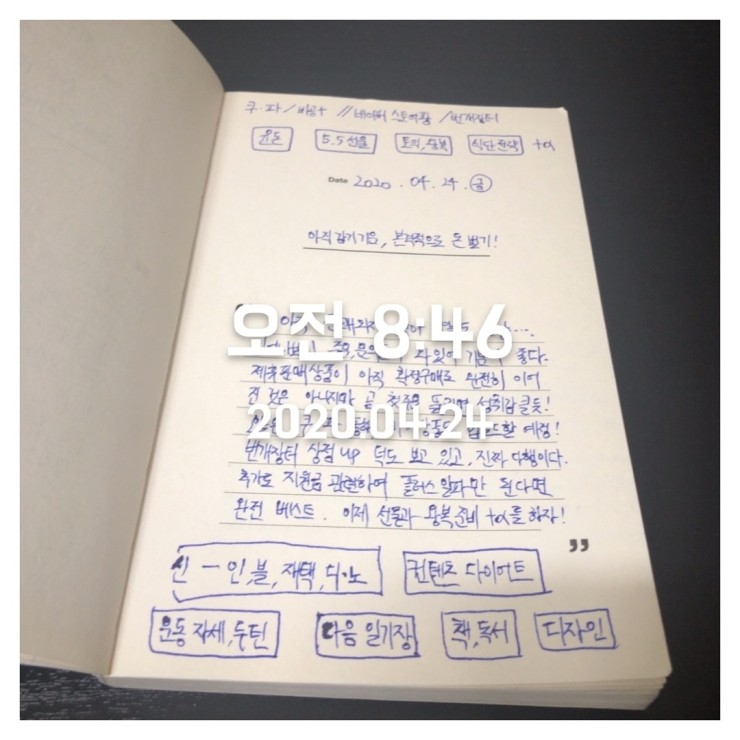 쿠.파/비공+ //네이버 스토어팜 /번개장터
운돈 5.5선율 토익,행복 식단전략 +α
Date 2020.04.24.금
아직 감기기운, 본격적으로 돈 벌기!
오전 8:46
아직
다 있어 기분 좋다.
제휴판매상품이 아직 확정구매로 완전히 이어
진 것은 아니지만 곧 첫주문 들리면 성취감 클듯!
2020.04.24
예정!
번개장터 상점 up 덕도 보고 있고, 진짜 다행이다.
추가로 지원금 관련하여 플러스 알파만 된다면
완전 베스트. 이제 선물과 왕복준비 +α를 하자!
”
신 - 인,블,재택,디·노 컨텐츠 다이어트
운동 자세,루틴 다음 일기장 책,독서 디자인